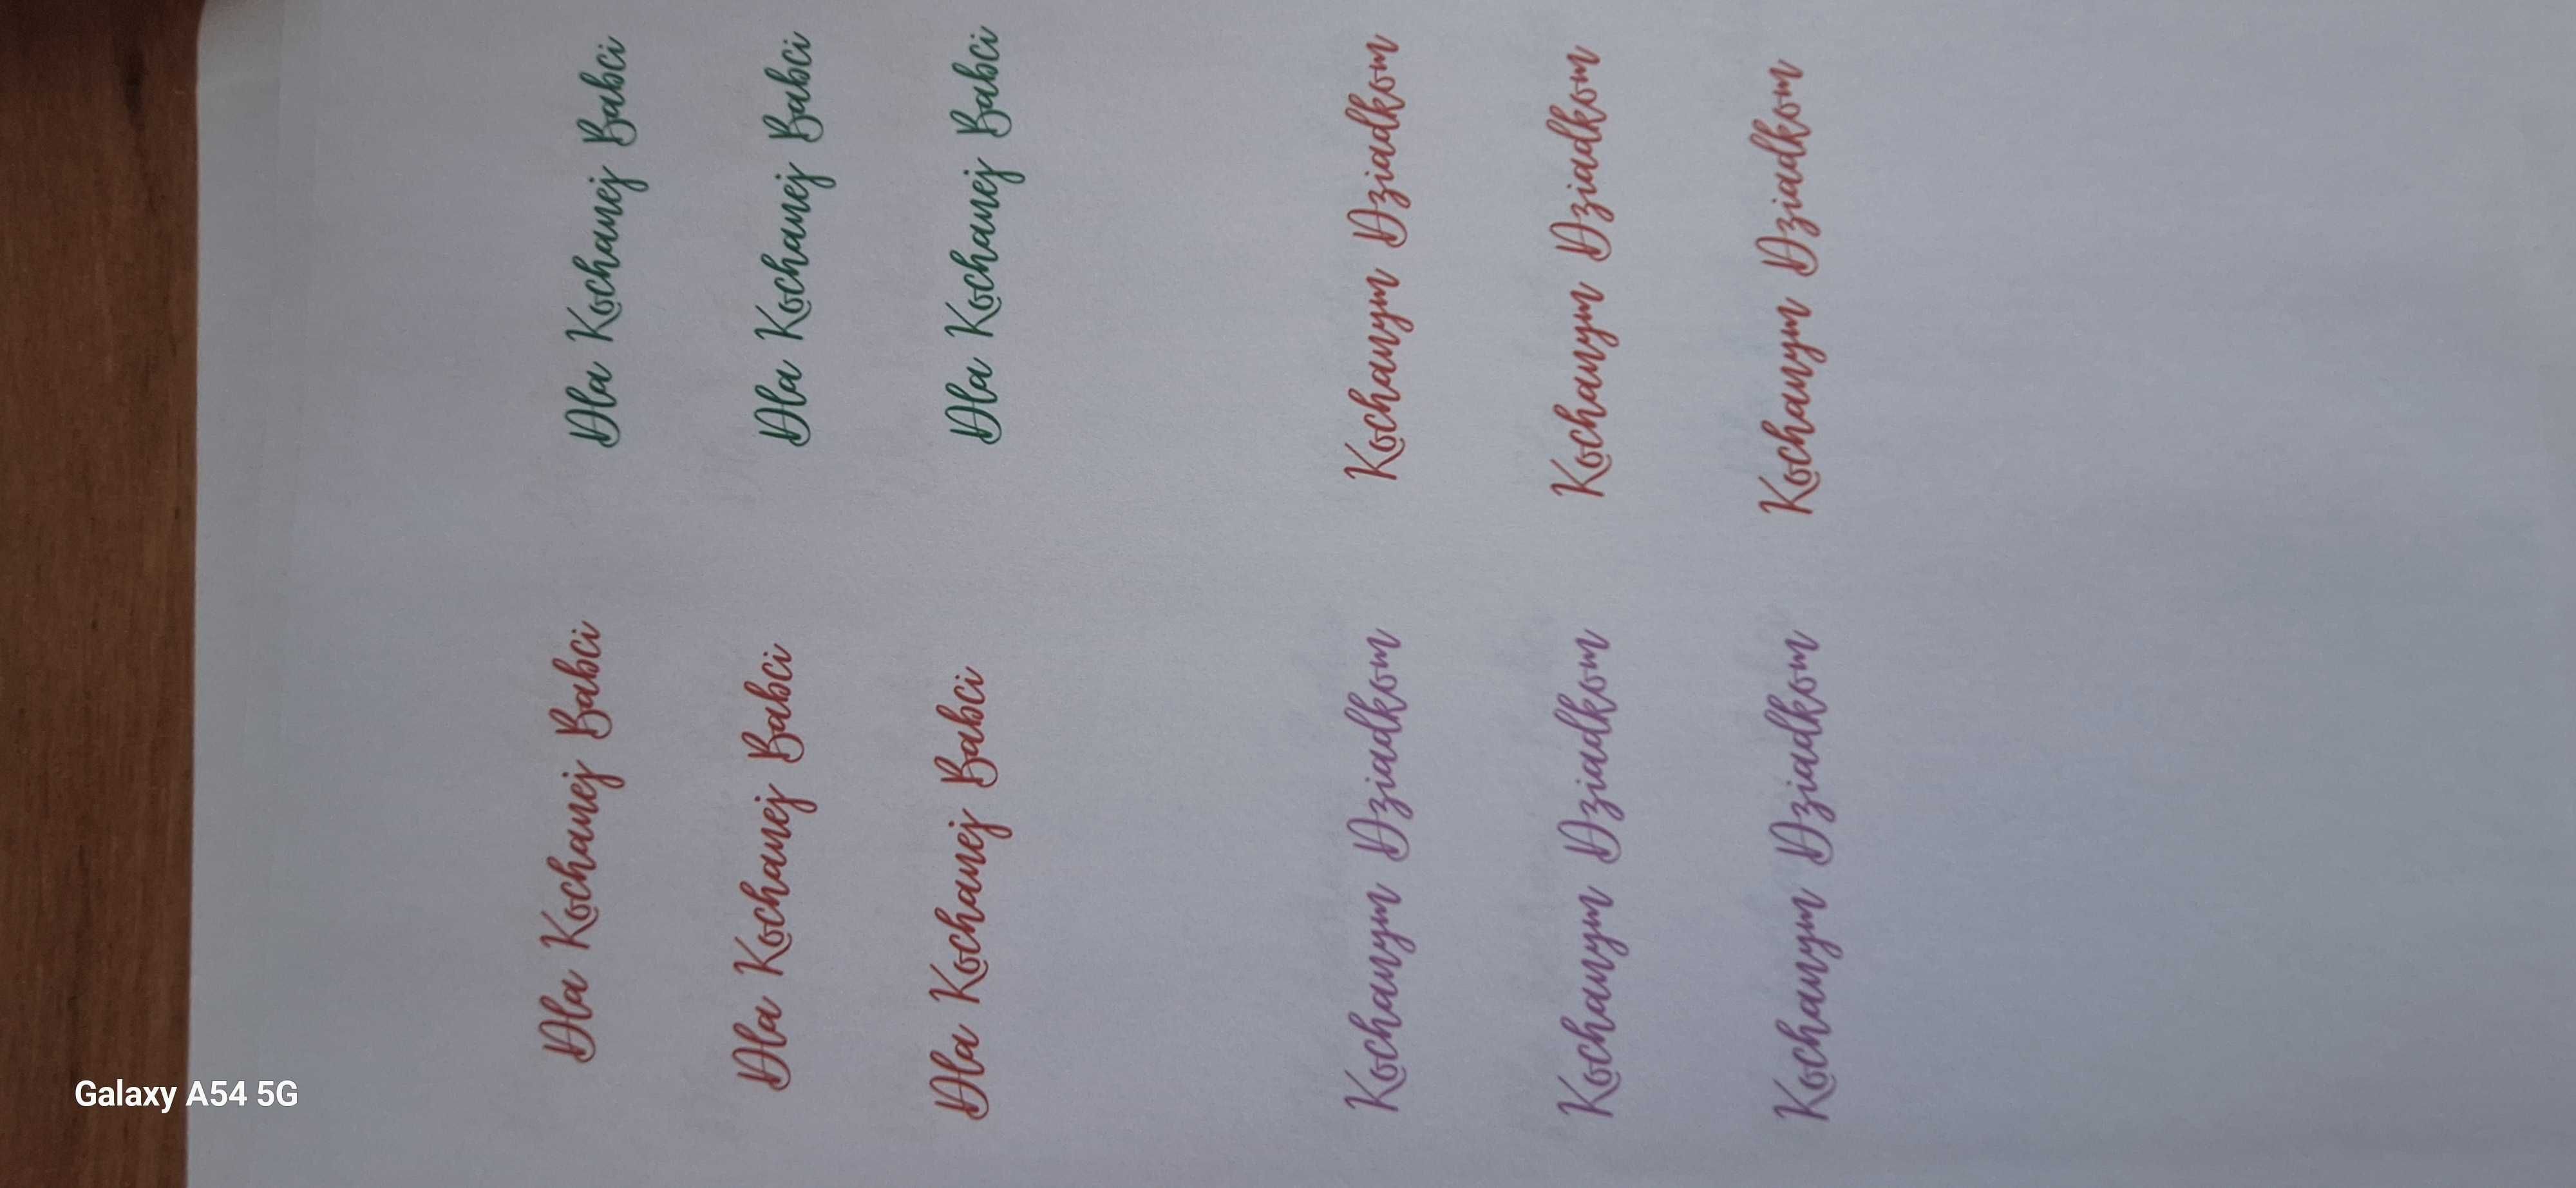 Dla Kochanej Babci Dla Kochanej Babci
Dla Kochanej Babci Dla Kochanej Babci
Dla Kochanej Babci Dla Kochanej Babci
Kochanym Dziadkom Kochanym Dziadkom
Kochanym Dziadkom Kochanym Dziadkom
Kochanym Dziadkom Kochanym Dziadkom
Galaxy A54 5G